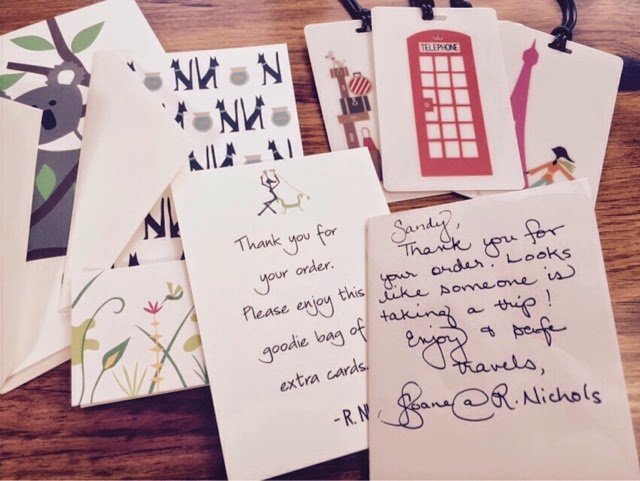 TELEPHONE
Thank you for
your order.
Please enjoy this
goodie bag of
extra cards.
-R. N
Sandy,
Thank you for
your order. Looks
like someone is
taking a trip!
Enjoy & safe
travels,
Sloane @ R. Nichols